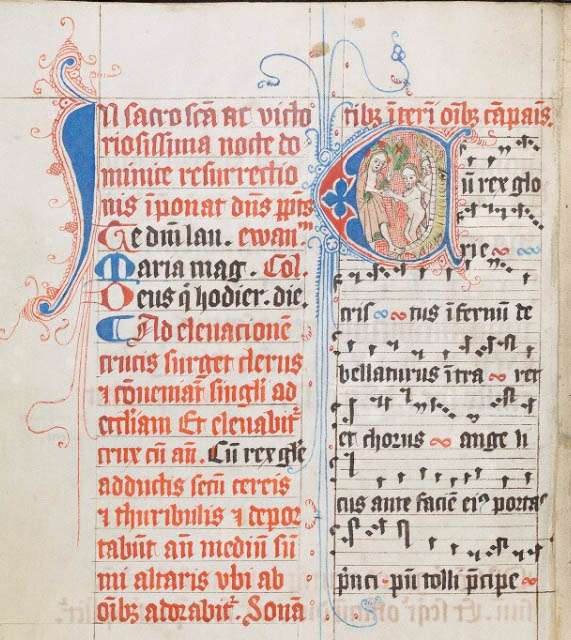 In sacro sc̄a ac victo
riosissima nocte do
minice resurrectio
nis īponat dn̄s pp̄ts
Te dm̄ lau. ewan.
Maria mag. Col.
Deus q̄ hodier. die.
Ad eleuacionē
crucis surget clerus
⁊ cōueniāt singli ad
eccliam Et eleuabit᷑
crux cū añ. Cū rex gle
adductis secū cereis
⁊ thuribulis ⁊ depor
tabūt añ mediū sū
mi altaris vbi ab
oībꝫ adorabit᷑. Sonā
tibꝫ īteri oībꝫ cāpāis.
Cū rex glo
rie
cris tus īfernū de
bellaturus ītra ret
et chorus ange li
cus ante faciē eiꝰ portas
pͥnci pū tolli pͥcipe